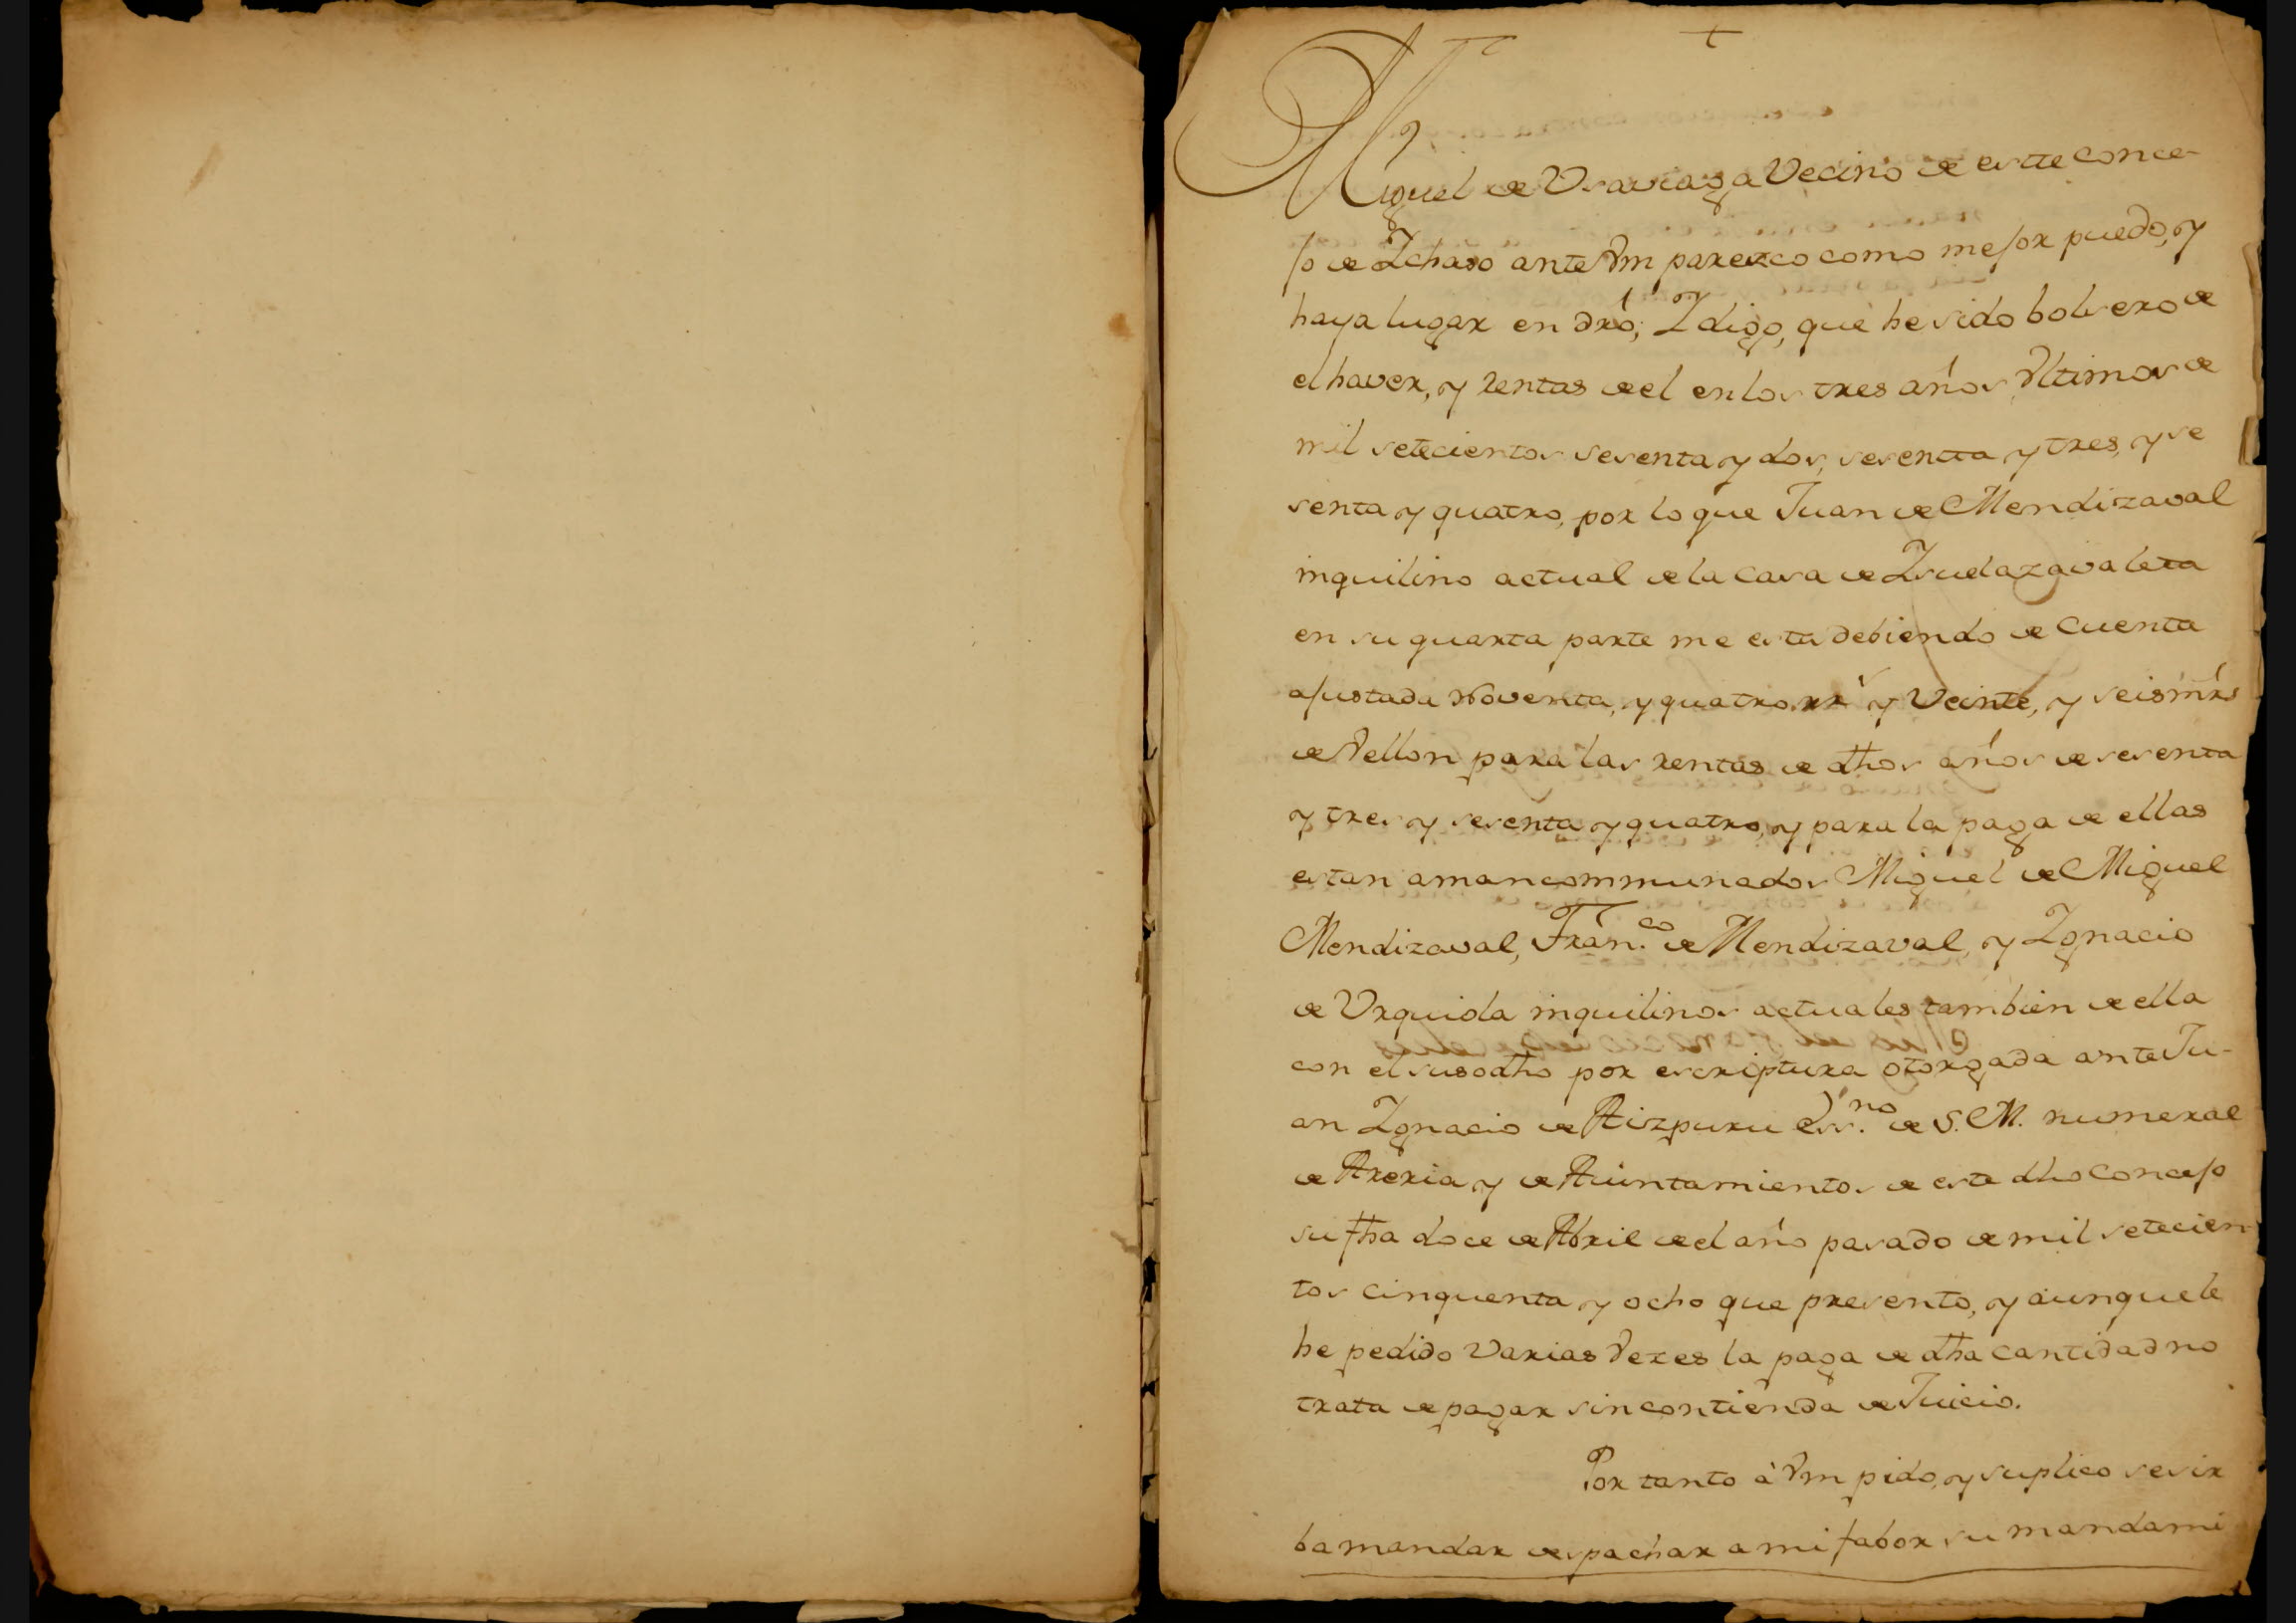 +
Miguel de Usarraga Vecino de este conce-
jo de Ichaso ante Vm parezco como mejor puedo, y
haya lugar en dró; Y digo, que he sido bolsero de
el haver, y rentas de el en los tres años Vltimos de
mil setecientos sesenta y dos, sesenta y tres, y se
senta y quatro, por lo que Juan de Mendizaval
inquilino actual de la casa de Ysuelazavaleta
en su quarta parte me esta debiendo de cuenta
ajustada Noventa, y quatro rr.s y Veinte, y seis mŕs
de Vellon para las rentas de dhos años de sesenta
y tres y sesenta y quatro, y para la paga de ellas
estan amancommunados Miguel de Miguel
Mendizaval, Fran.co de Mendizaval, y Ygnacio
de Vrquiola inquilinos actuales tambien de ella
con el susodho por escriptura otorgada ante Ju-
an Ygnacio de Aizpuru Ess.no de S. M. numeral
de Areria y de Aiuntamientos de este dho Concejo
su fha doce de Abril de el año pasado de mil setecien
tos cinquenta y ocho que presento, y aunque le
he pedido Varias Vezes la paga de dha cantidad no
trata de pagar sin contienda de Juicio.
Por tanto à Vm pido, y suplico se sir
ba mandar despachar a mi fabor su mandami